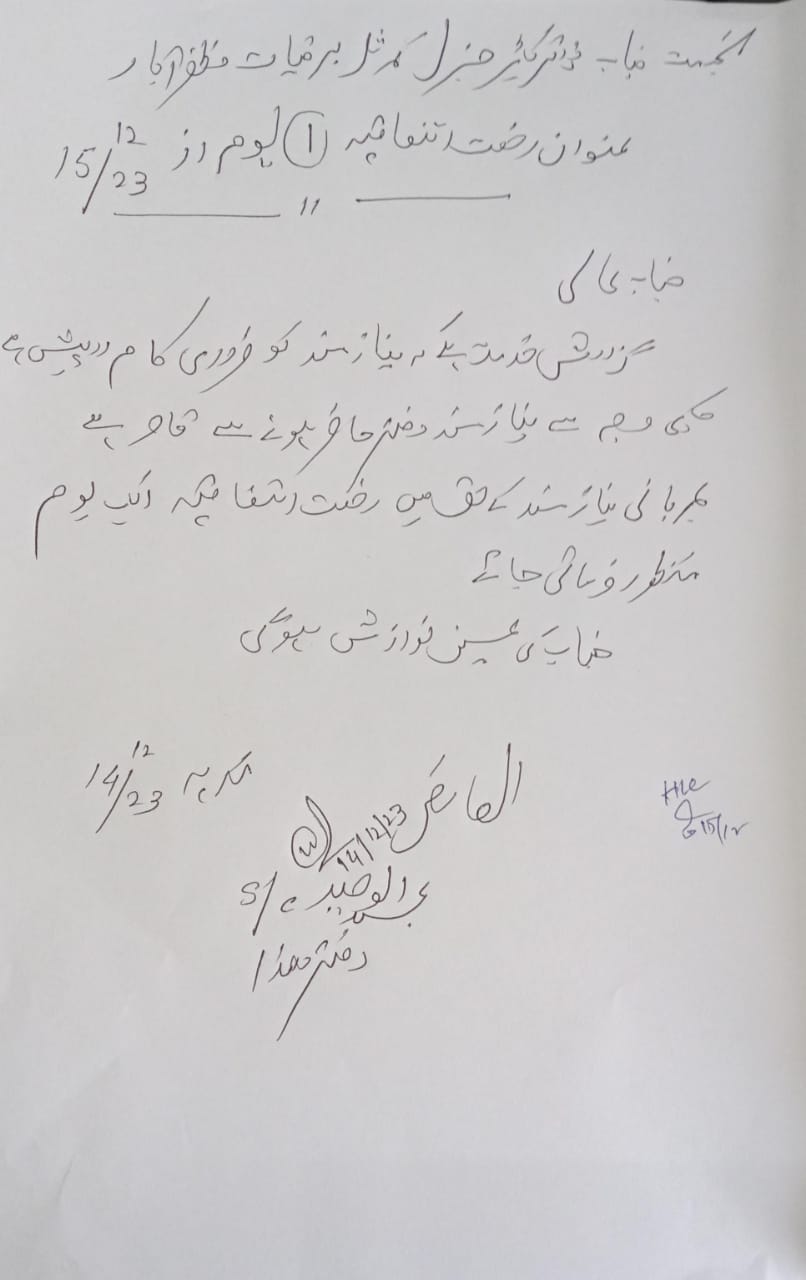 بخدمت جناب ڈائریکٹر جنرل کمرشل برقیات مظفرآباد
عنوان رخصت اتفاقیہ ① یوم از 15/12/23
〃
جناب عالی
گزارش خدمت ہیکہ نیازمند کو ضروری کام درپیش ہے
جسکی وجہ سے نیازمند دفتر حاضر ہونے سے قاصر ہے
مہربانی نیازمند کے حق میں رخصت اتفاقیہ ایک یوم
منظور فرمائی جائے
جناب کی عین نوازش ہوگی
المرقوم 14/12/23
العارض
14/12/23
عبدالوحید S/C
دفتر ھذا
15/12